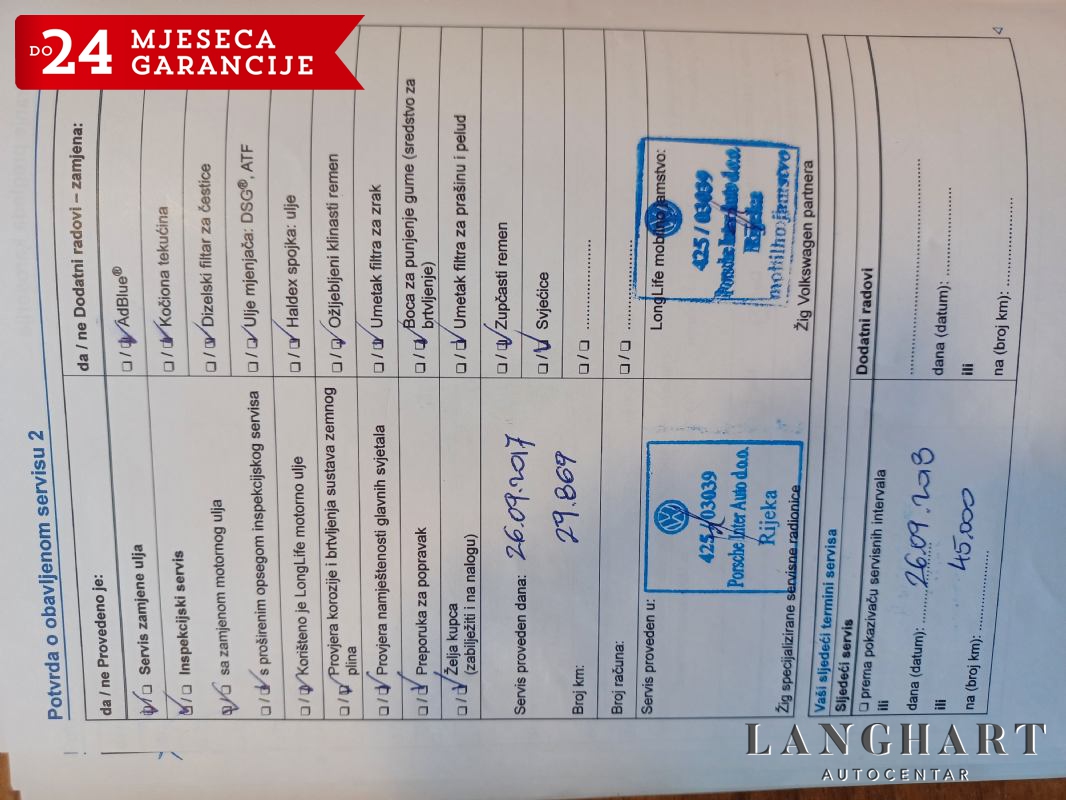 DO 24 MJESECA
GARANCIJE
Potvrda o obavljenom servisu 2
da / ne Provedeno je:
☑ / ☐ Servis zamjene ulja
☑ / ☐ Inspekcijski servis
☑ / ☐ sa zamjenom motornog ulja
☐ / ☑ s proširenim opsegom inspekcijskog servisa
☐ / ☑ Korišteno je LongLife motorno ulje
☐ / ☑ Provjera korozije i brtvljenja sustava zemnog
plina
☐ / ☑ Provjera namještenosti glavnih svjetala
☐ / ☑ Preporuka za popravak
☐ / ☑ Želja kupca
(zabilježiti i na nalogu)
da / ne Dodatni radovi – zamjena:
☐ / ☑ AdBlue®
☐ / ☑ Kočiona tekućina
☐ / ☑ Dizelski filtar za čestice
☐ / ☑ Ulje mjenjača: DSG®, ATF
☐ / ☑ Haldex spojka: ulje
☐ / ☑ Ožljebljeni klinasti remen
☐ / ☑ Umetak filtra za zrak
☐ / ☑ Boca za punjenje gume (sredstvo za
brtvljenje)
☐ / ☑ Umetak filtra za prašinu i pelud
☐ / ☑ Zupčasti remen
☐ / ☑ Svjećice
☐ / ☐ ....................
☐ / ☐ ....................
Servis proveden dana: 26.09.2017
Broj km: 29.869
Broj računa:
Servis proveden u:
425 / 03039
Porsche Inter Auto d.o.o.
Rijeka
Žig specijalizirane servisne radionice
LongLife mobilno jamstvo:
425 / 03039
Porsche Inter Auto d.o.o.
Rijeka
mobilno jamstvo
Žig Volkswagen partnera
Vaši sljedeći termini servisa
Sljedeći servis
☐ prema pokazivaču servisnih intervala
ili
dana (datum): 26.09.2018
ili
na (broj km): 45.000
Dodatni radovi
....................
dana (datum): ....................
ili
na (broj km): ....................
LANGHART
AUTOCENTAR